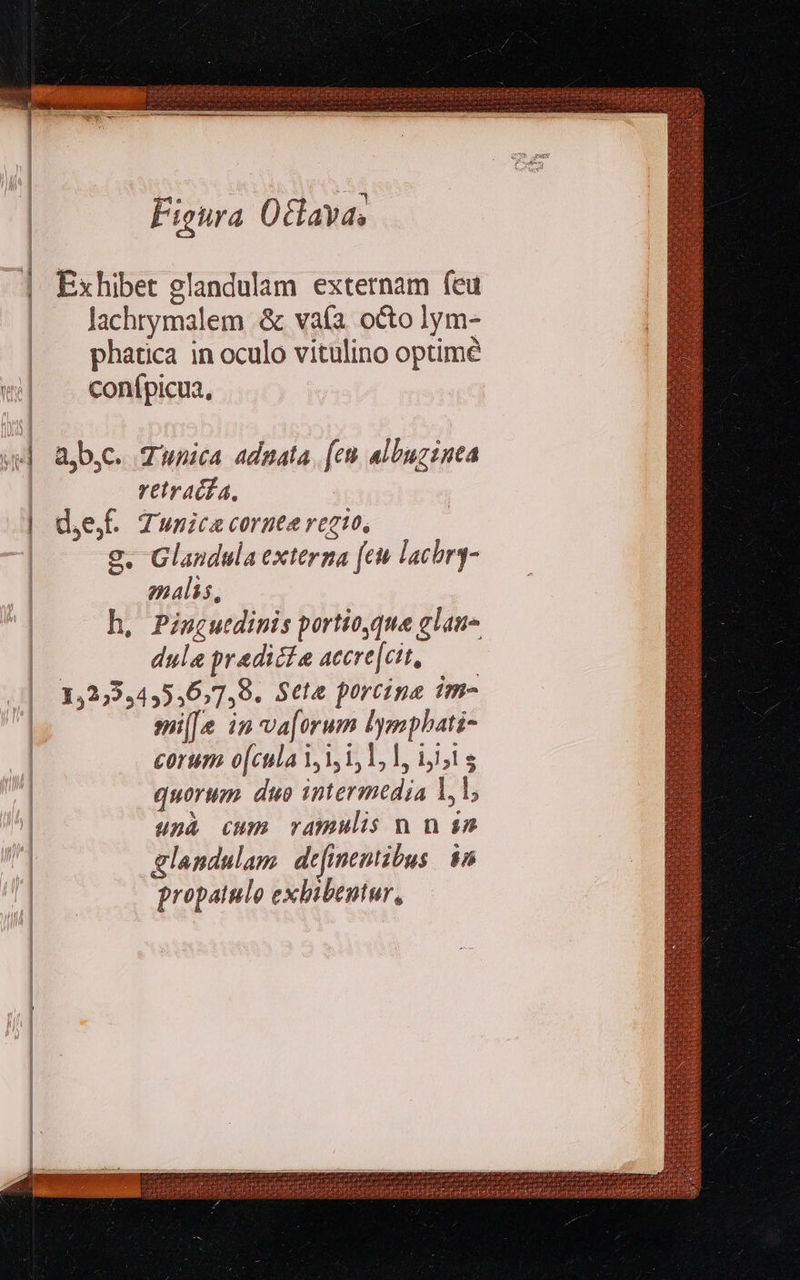 Figura Octava.
Exhibet glandulam externam ſeu
lachrymalem & vaſa octo lym-
phatica in oculo vitulino optimè
conſpicua.
a,b,c. Tunica adnata ſeu albuginea
retracta.
d,e,f. Tunicæ corneæ regio.
g. Glandula externa ſeu lachry-
malis.
h. Pinguedinis portio, quæ glan-
dulæ prædictæ accreſcit.
1,2,3,4,5,6,7,8. Setæ porcinæ im-
miſſæ in vaſorum lymphati-
corum oſcula i, i, i, l, l, i, i, i;
quorum duo intermedia l, l,
unà cum ramulis n n in
glandulam deſinentibus in
propatulo exhibentur.